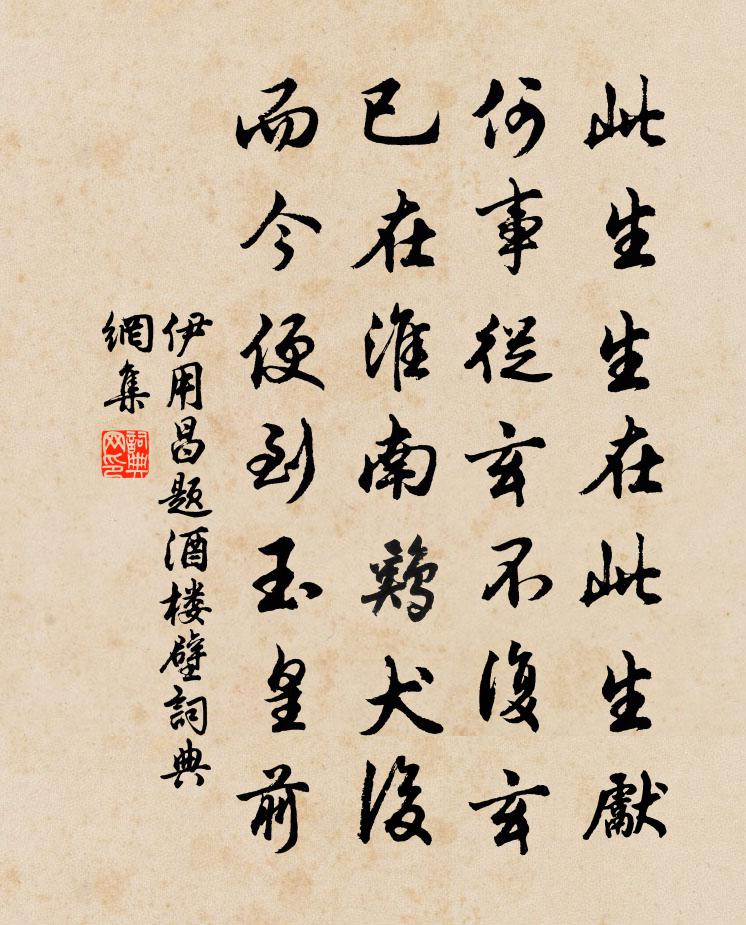 此生生在此生獻
何事從玄不復玄
已在淮南鷄犬後
而今便到玉皇前
伊用昌题酒楼壁詞典
網集
詞典网印